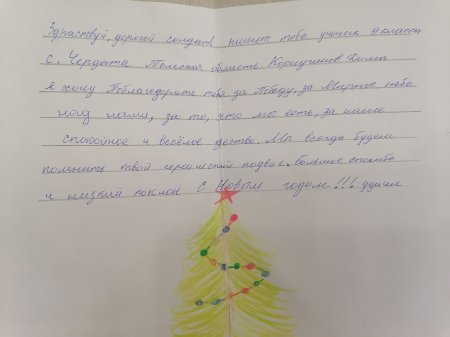 Здраствуй, дорогой солдат! пишет тебе ученик 4 класса
с. Чердаты Томская область Корпуганов Дима
я хочу Поблагодорить тебя за Победу, за Мирное небо
над нами, за то, что мы есть, за наше
спокойное и весёлое дество. Мы всегда будем
помнить твой героический подвог. Большое спасибо
и низкий поклон С Новым годом!!! удачи